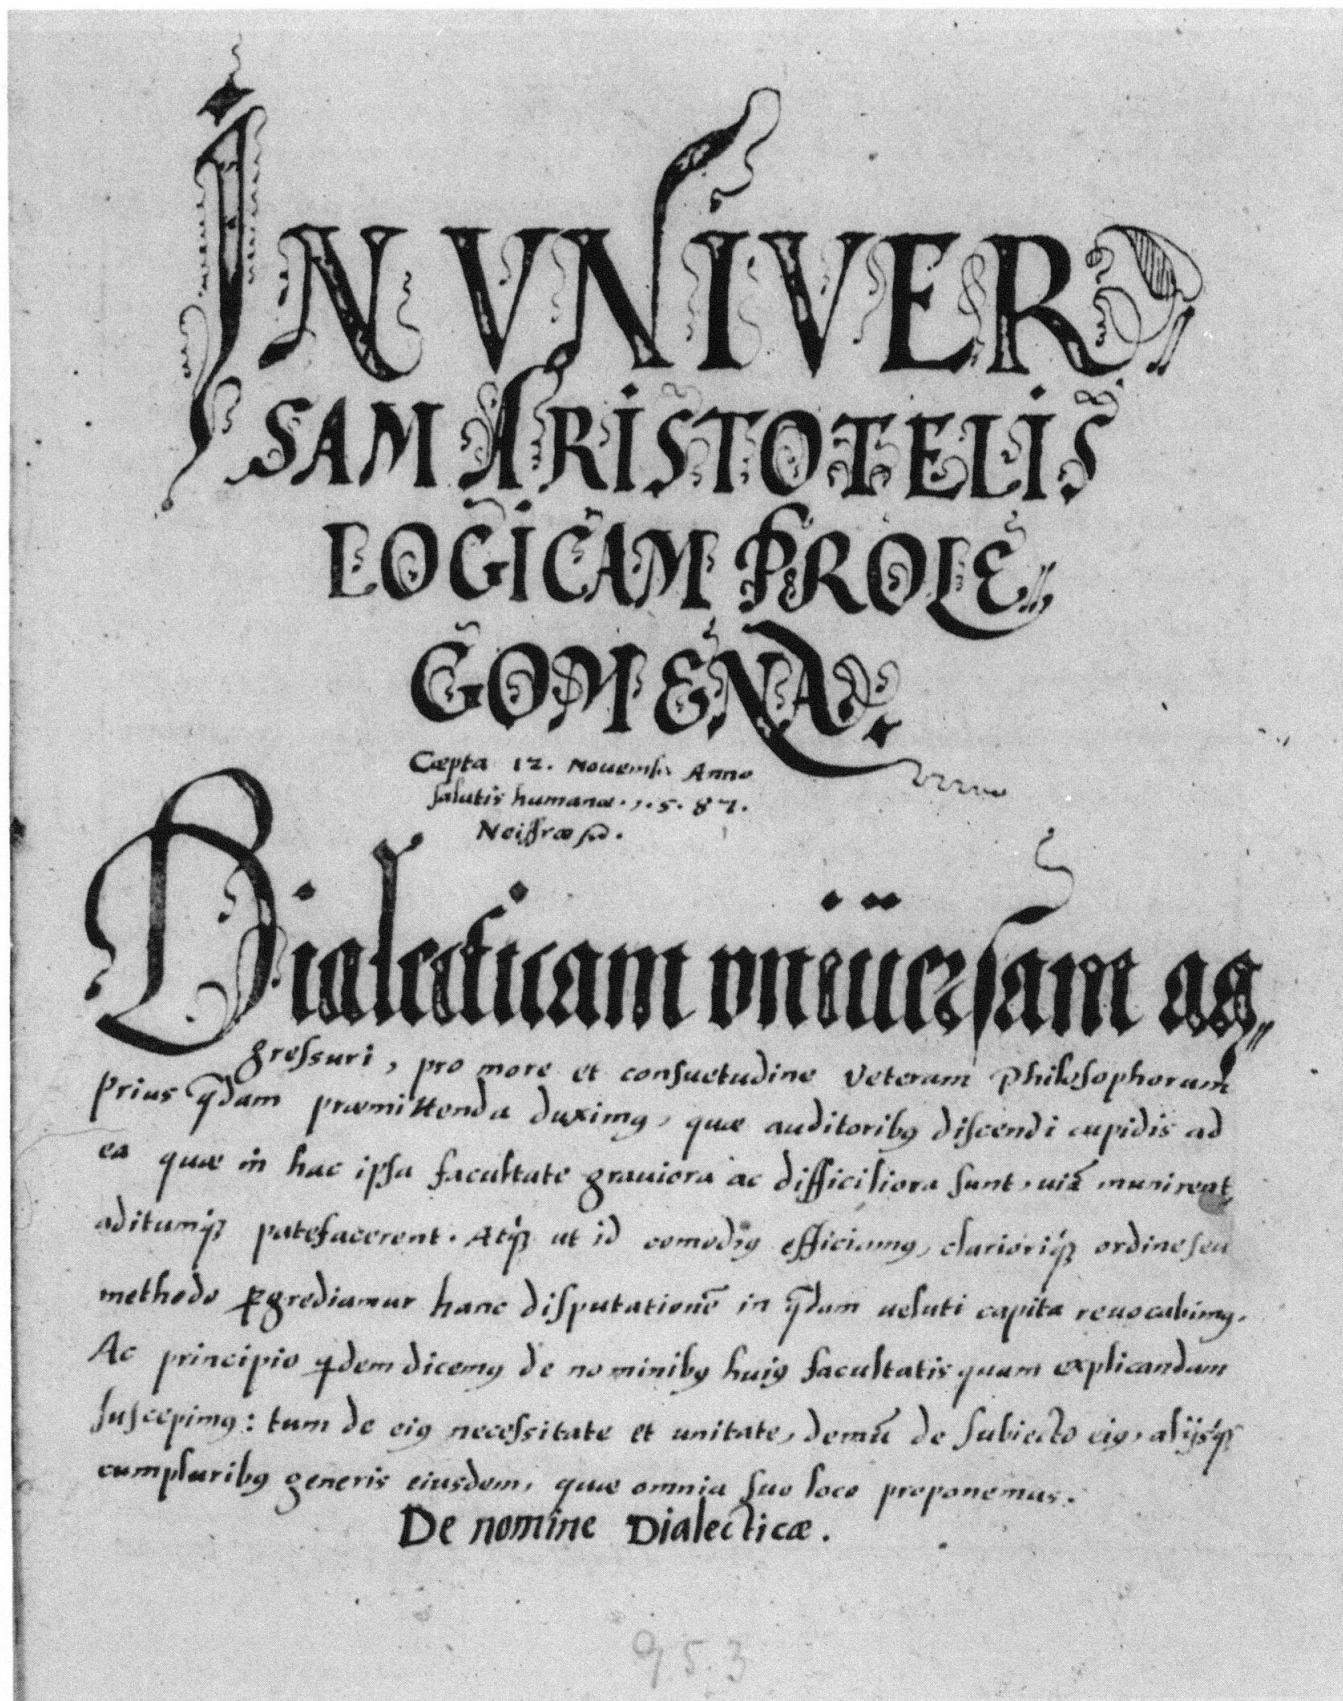 IN VNIVER
SAM ARISTOTELIS
LOGICAM PROLE„
GOMENA.
Cæpta 12. Nouemb. Anno
salutis humanæ. 1.5.87.
Neissæ
Dialecticam vniuersam ag„
gressuri, pro more et consuetudine Veterum Philosophorum
Prius q̃dam præmittenda duximꝰ, quæ auditoribꝰ discendi cupidis ad
ea quæ in hac ipsa facultate grauiora ac difficiliora sunt, uiã munirent
aditumq́ꝫ patefacerent. Atq́ꝫ ut id comodiꝰ efficiamꝰ, clarioriq́ꝫ ordine seu
methodo ꝓgrediamur hanc disputationẽ in q̃dam ueluti capita reuocabimꝰ.
Ac principio qdem dicemꝰ de nominibꝰ huiꝰ facultatis quam explicandam
suscepimꝰ: tum de eiꝰ necessitate et unitate, demũ de subiecto eiꝰ, alijsq́ꝫ
cumpluribꝰ generis eiusdem, quæ omnia suo loco proponemus.
De nomine Dialecticæ.
953